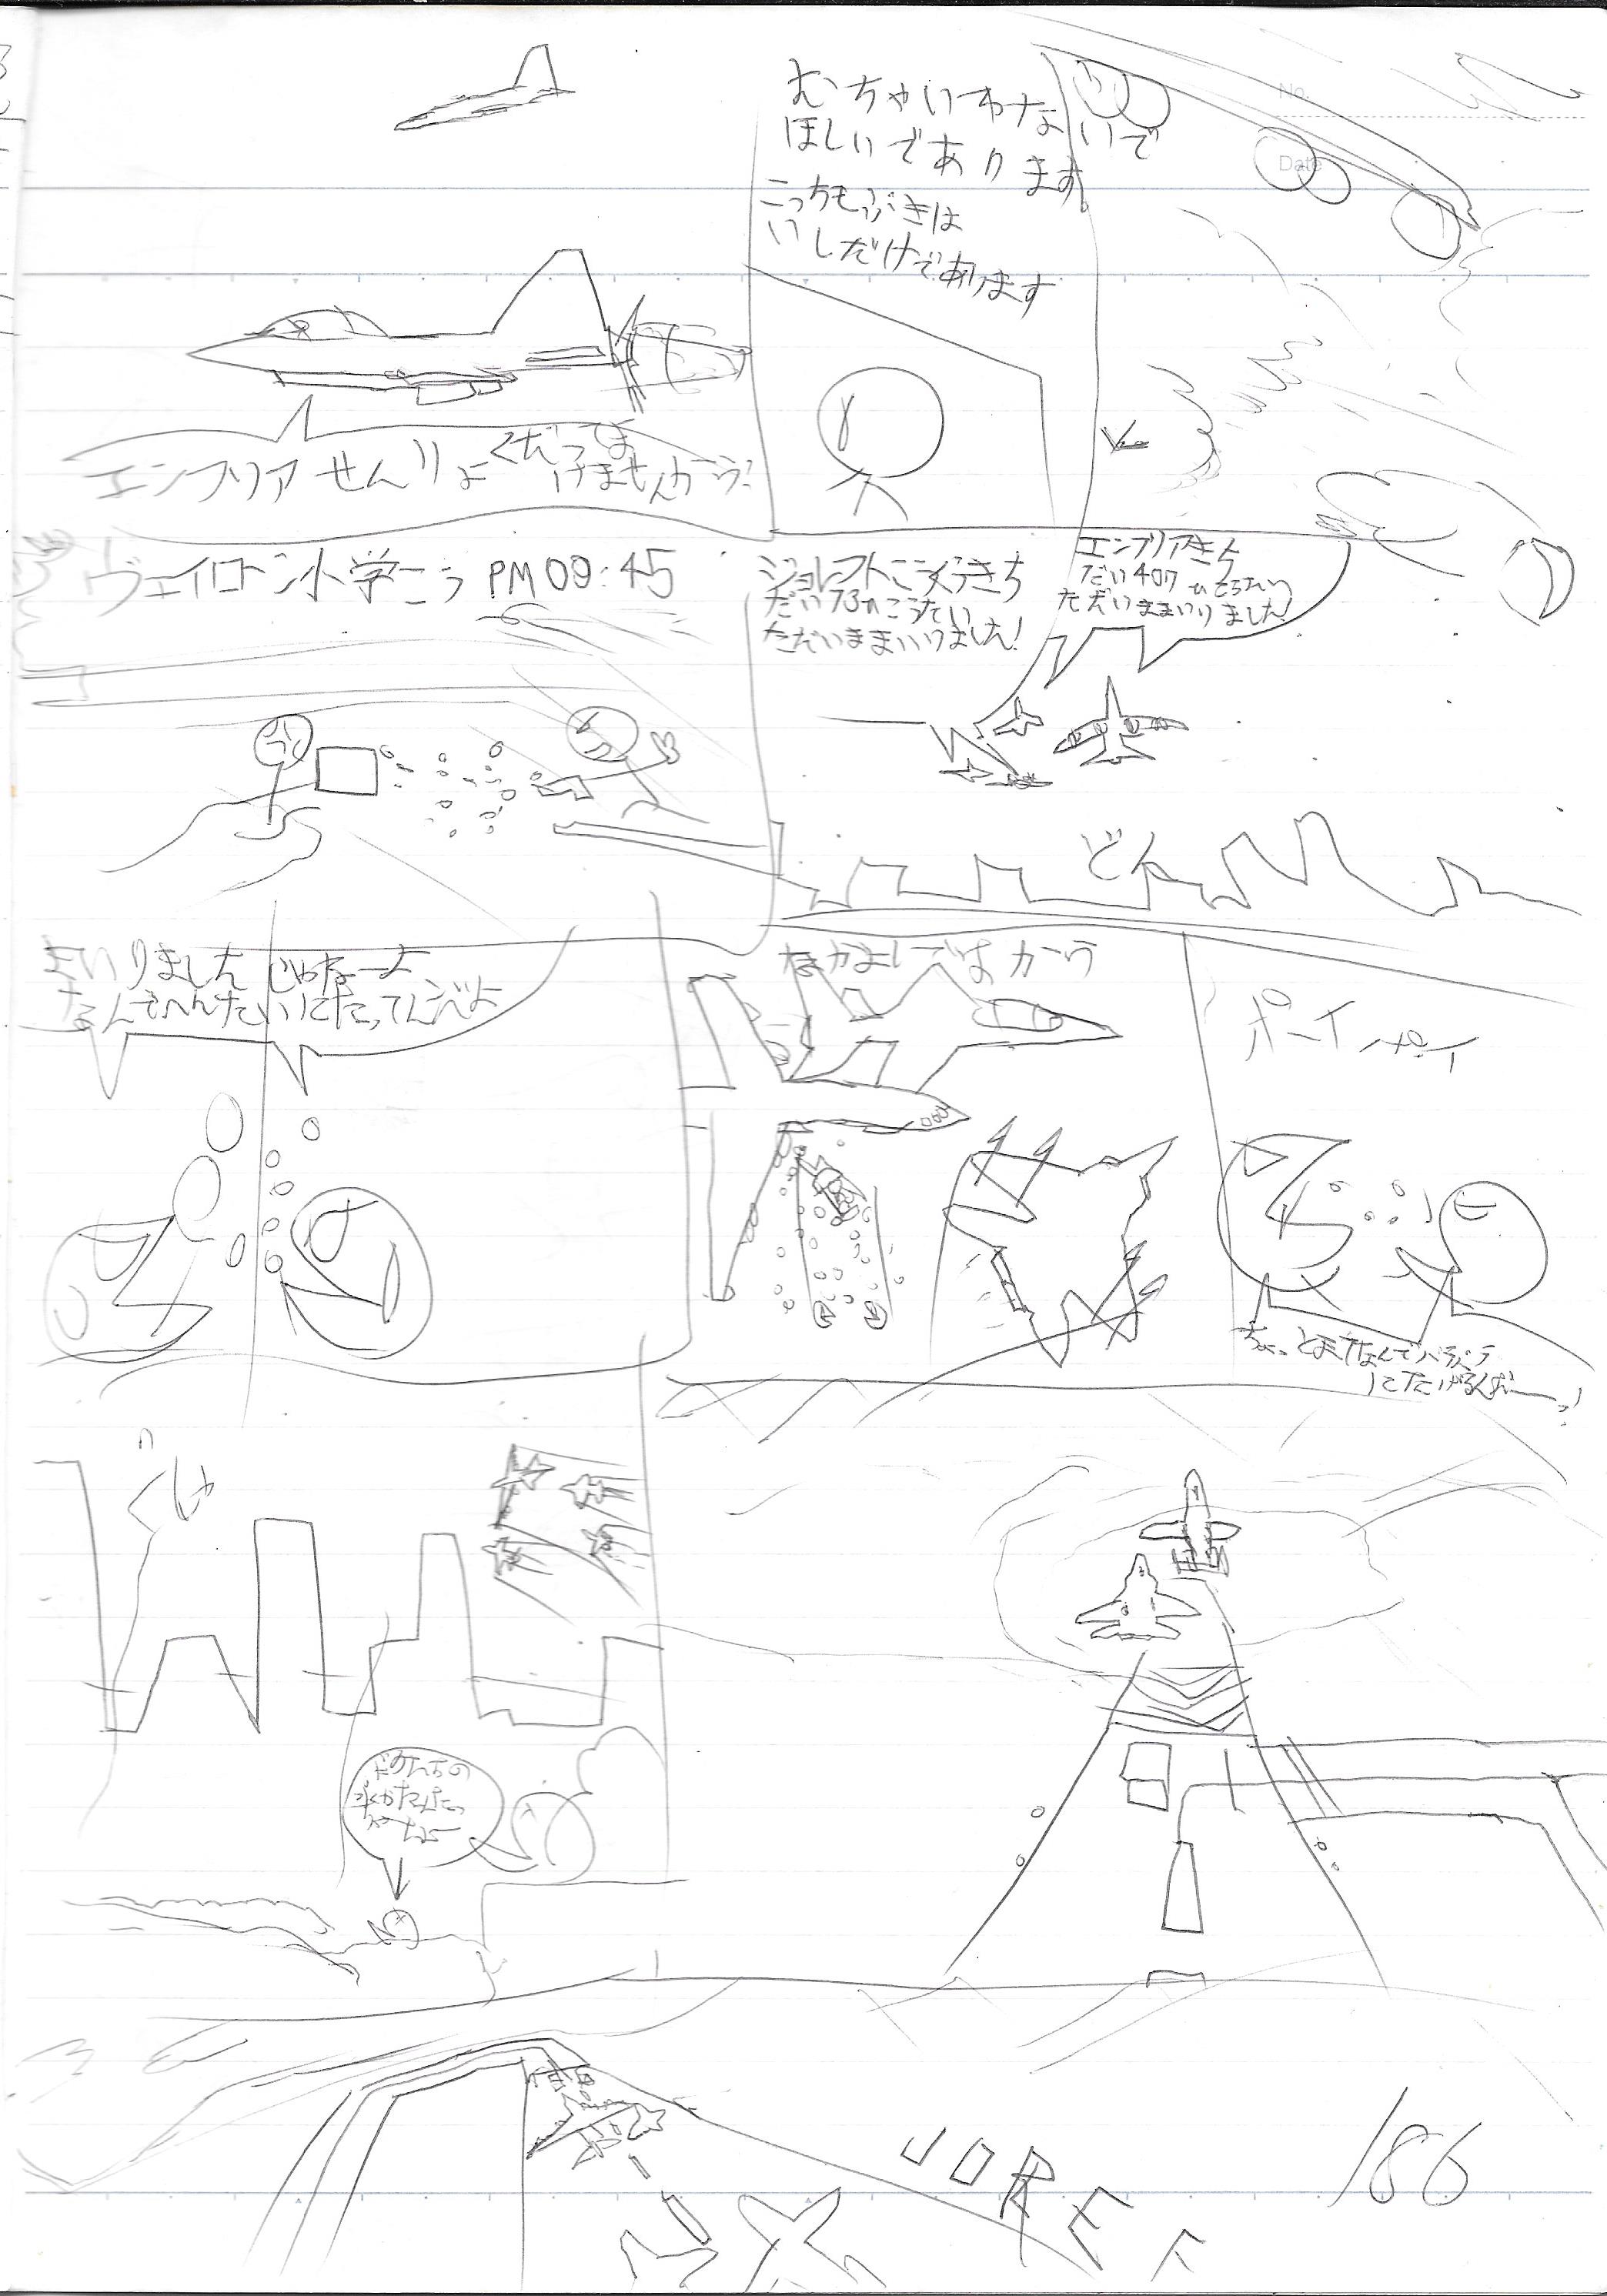 No.
Date
むちゃいわないで
ほしいであります。
こっちもぶきは
いしだけであります
エンブリア せんりょくだってま
けませんがう!
ヴェイロン小学こう PM 09:45
ジョレフトこくうきち
だい73ひこうたい
ただいままいりました!
エンブリアきち
だい407ひこうたい
ただいままいりました!
どん
まいりました じゃねーよ
なんでへんたいになってんだよ
なかよしではかう
ポーイ ポイ
ちょっとまてなんでバラバラ
ににげるんだーっ!
JOREF
186